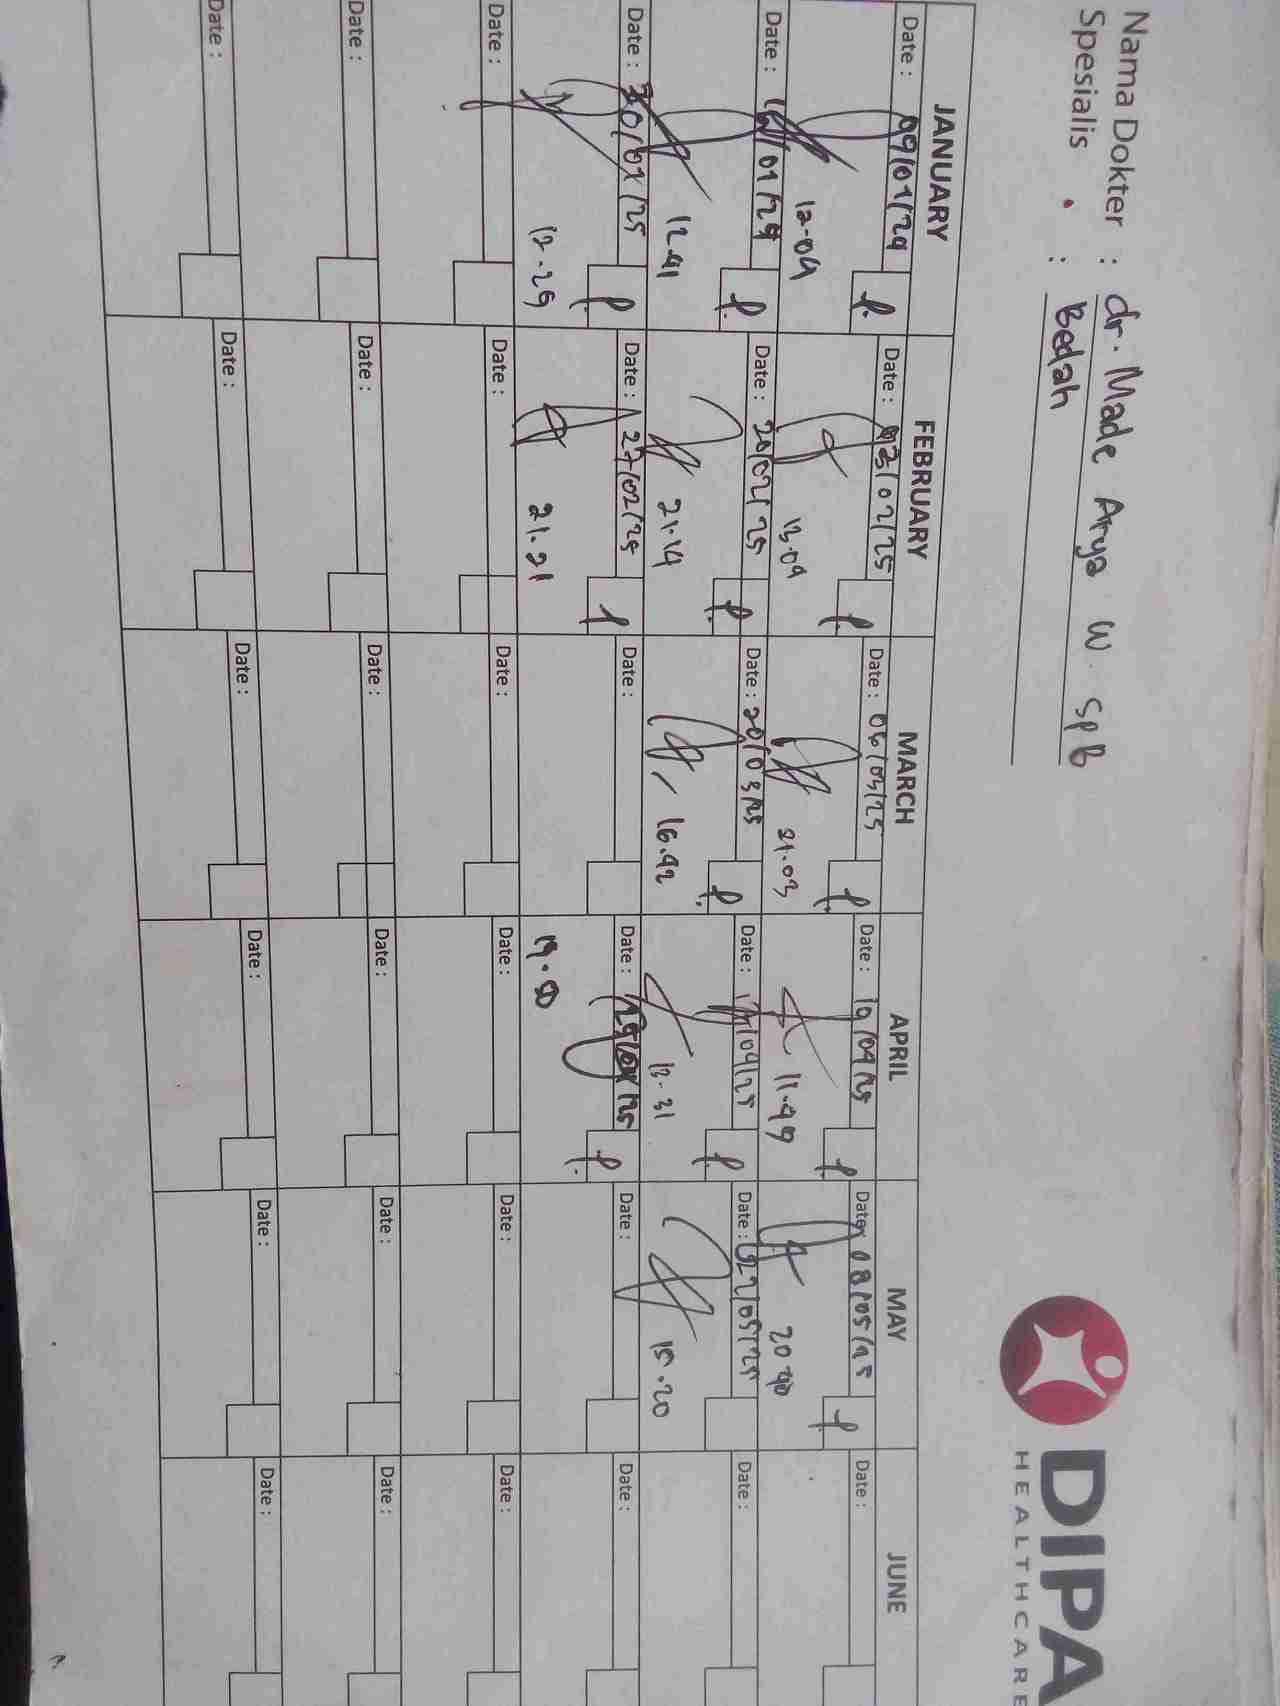 Nama Dokter : dr. Made Arya W. SpB
Spesialis : Bedah
DIPA
HEALTHCARE
JANUARY FEBRUARY MARCH APRIL MAY JUNE
Date : 09/01/24 Date : 03/02/25 Date : 06/03/25 Date : 10/04/25 Date : 08/05/25 Date :
12.04 13.04 21.03 11.49 20 40
Date : 16/01/24 Date : 20/02/25 Date : 20/03/25 Date : 17/04/25 Date : 22/05/25 Date :
12.41 21.14 16.42 13.31 15.20
Date : 30/01/25 Date : 27/02/25 Date : Date : Date : Date :
12.25 21.21 19.50
Date : Date : Date : Date : Date : Date :
Date : Date : Date : Date : Date : Date :
Date : Date : Date : Date : Date : Date :